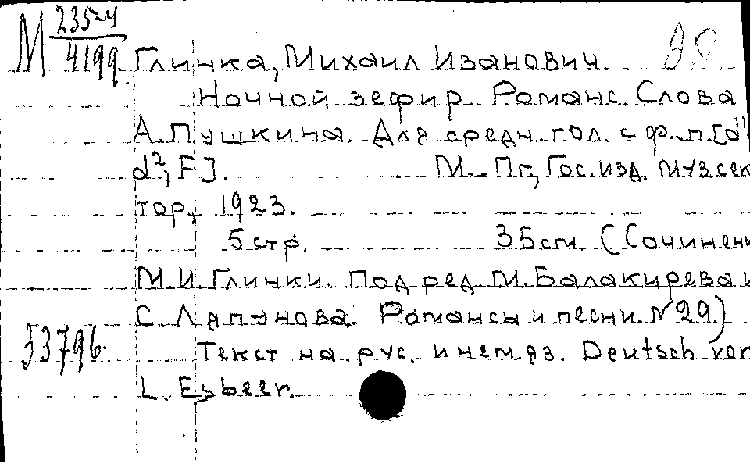 М 23524/4199
Глинка, Михаил Иванович.
Ночной зефир. Романс. Слова
А. Пушкина. Для средн. гол. с ф.-п. [d'
d², F].   М.-Пг., Гос. изд. муз. сек
тор, 1923.
5 стр.   35 см. (Сочинени
М. И. Глинки. Под ред. М. Балакирева и
С. Ляпунова. Романсы и песни. № 29)
53796.
Текст на рус. и нем. яз. Deutsch von
L. Esbeer.